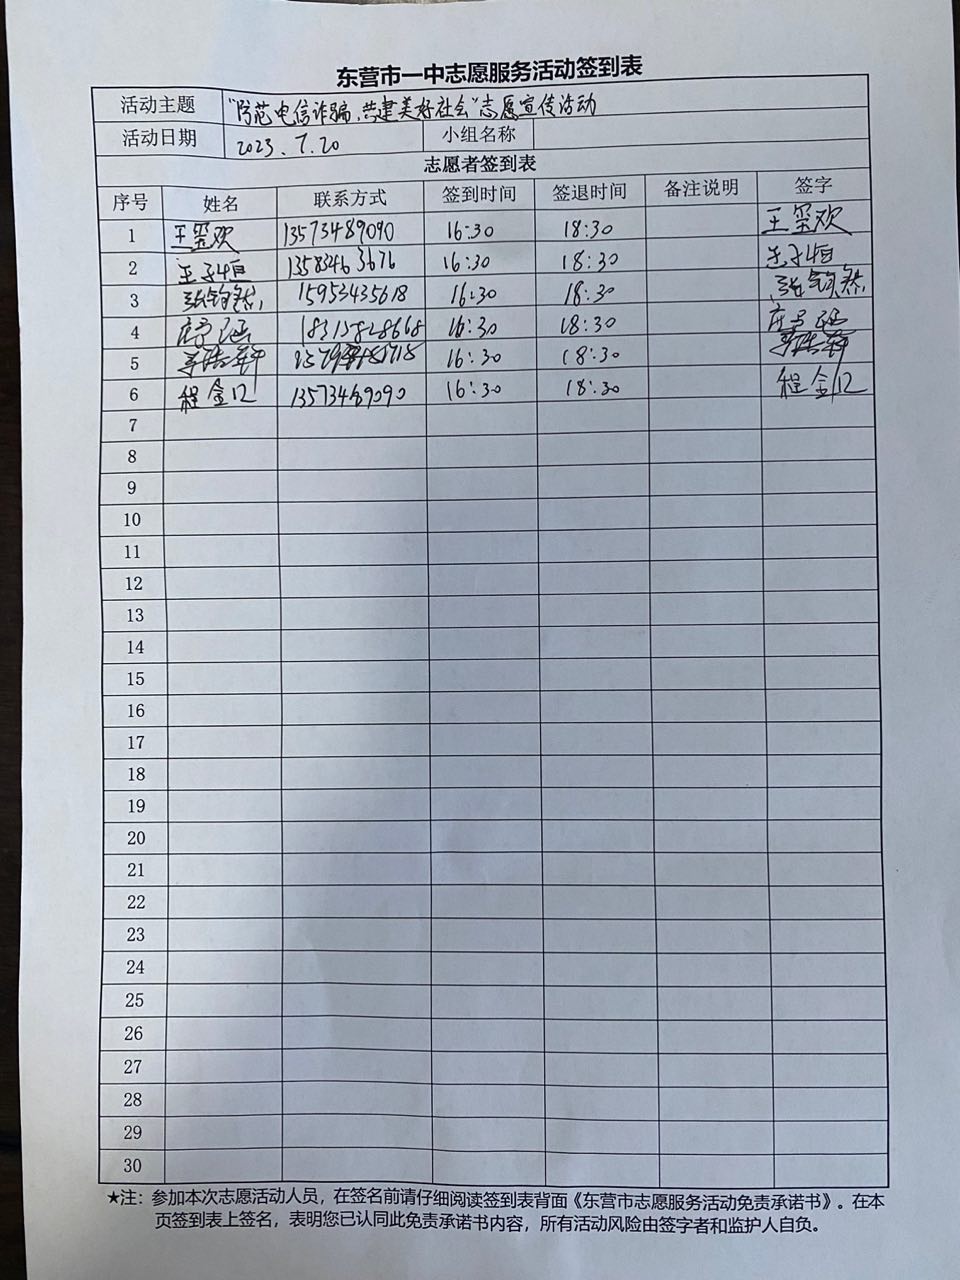 东营市一中志愿服务活动签到表
活动主题 "防范电信诈骗、共建美好社会"志愿宣传活动
活动日期 2023.7.20 小组名称
志愿者签到表
序号 姓名 联系方式 签到时间 签退时间 备注说明 签字
1 王 欢 13573489090 16:30 18:30 王 欢
2 王子恒 13583463676 16:30 18:30 王子恒
3 张钧 15953435618 16:30 18:30 张钧
4 18315828668 16:30 18:30
5 16:30 18:30
6 程金 13573469090 16:30 18:30 程金
7
8
9
10
11
12
13
14
15
16
17
18
19
20
21
22
23
24
25
26
27
28
29
30
★注：参加本次志愿活动人员，在签名前请仔细阅读签到表背面《东营市志愿服务活动免责承诺书》。在本
页签到表上签名，表明您已认同此免责承诺书内容，所有活动风险由签字者和监护人自负。